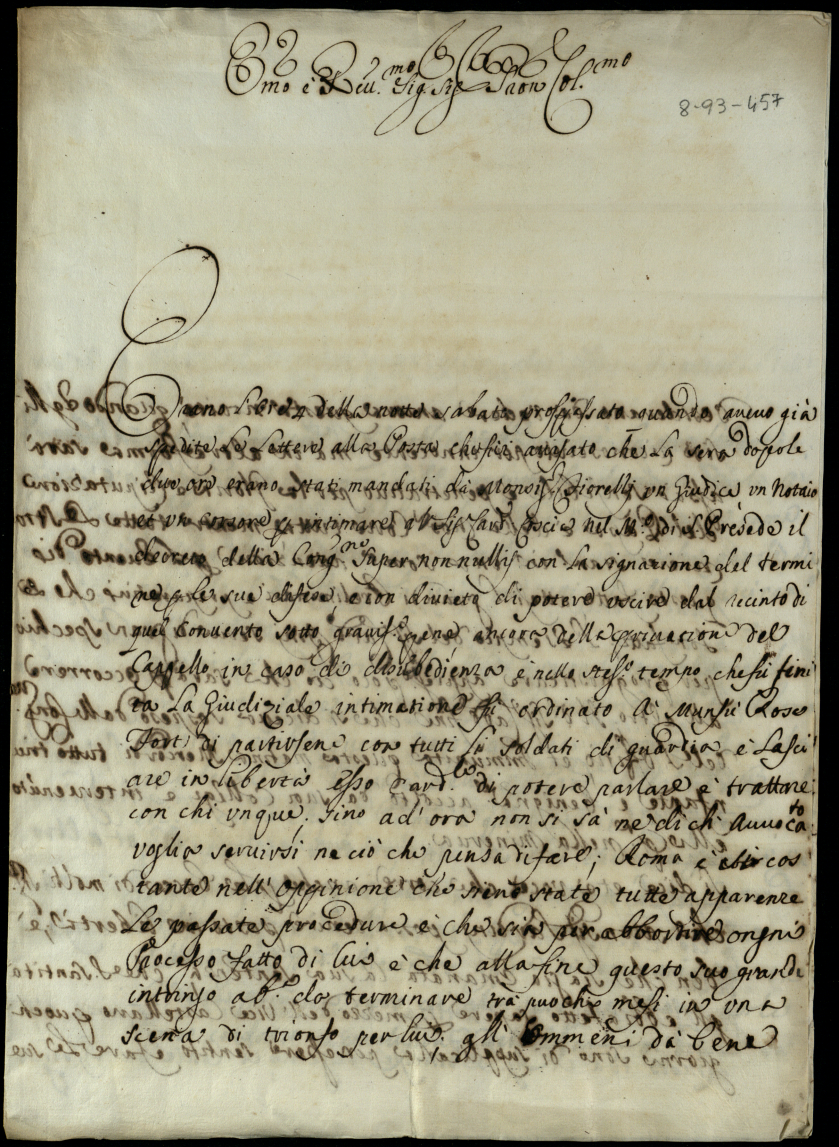 Emo e Reu.mo Sig Sig Pron Col.mo
8-93-457
Erano le tre della notte sabato prossipassato quando aueuo già
spedite le lettere alla Posta che fui auisato che la sera dopo le
duo ore erano stati mandati da Monsig.r Fiorelli un Giudice un Notaio
et un cursore p intimare al Sig Card Coscia nel M.o di S. Presede il
decreto della Cong.ne super non nullis con la signazione del termi
ne p le sue difese e con diuieto di potere uscire dal recinto di
quel Conuento sotto grauiss.e pene ancora della priuazione del
Cappello in caso di disubedienza e nello stesso tempo che fu fini
ta la Giudiziale intimatione fu ordinato a Munsù Rose
Fort di partirsene con tutti li soldati di guardia e lasci
are in libertà esso Card.le di potere parlare e trattare
con chi unque. fino ad' ora non si sà ne di ch' Auuocato
voglia seruirsi ne ciò che pensa di fare; Roma è
tante nell' oppinione che sieno state tutte apparenze
le passate procedure e che sia per abbortire ongni
Processo fatto di lui e che alla fine questo suo grande
intrigo ab. da terminare tra puochi mesi in una
scena di trionfo per lui. gli Ommeni da bene